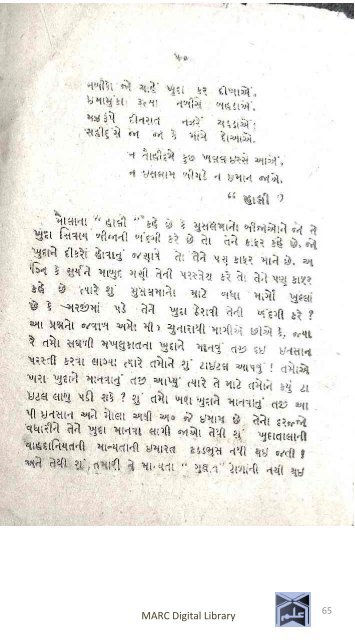 ૫૦
નબીકા જો ચાહેં ખુદા કર દીખાએં,
ઇમામુંકા રૂત્બા નબીસે બઢાએં,
મઝારૂંપે દીનરાત નઝરેં ચઢાએં,
શહીદુંસે જા જા કે માંગે દોઆએં
ન તૌહીદમેં કુછ ખલલ ઇસસે આએ,
ન ઇસ્લામ બીગડે ન ઇમાન જાએ.
“ હાલી ”
મૌલાના “ હાલી ” કહે છે કે મુસલમાનો બીજાઓને જો તે
ખુદા સિવાય બીજાની બંદગી કરે છે તો તેને કાફર કહે છે. જો
ખુદાને દીકરો હોવાનું જણાવે તો તેને પણ કાફર માને છે. અ
ગ્નિ કે સુર્યને માબુદ ગણી તેની પરસ્તેશ કરે તો તેને પણ કાફર
કહે છે ત્યારે શું મુસલમાનો માટે બધા માર્ગો ખુલ્લાં
છે કે મરજીમાં પડે તેને ખુદા ઠેરાવી તેની બંદગી કરે ?
આ પ્રશ્નનો જવાબ અમો મી૦ ચુનારાથી માગીએ છીએ કે, જ્યા
રે તમો સઘળી મખલુકાતના ખુદાને માનવું તજી દઇ ઇનસાન
પરસ્તી કરવા લાગ્યા ત્યારે તમોને શું ટાઇટલ આપવું ! તમોએ
ખરા ખુદાને માનવાનું તજી આપ્યું ત્યારે તે માટે તમોને કયું ટા
ઇટલ લાગુ પડી શકે ? શું તમો ખરા ખુદાને માનવાનું તજી આ
પી ઇનસાન અને મૌલા અલી અ૦ જે ઇમામ છે તેનો દરજ્જો
વધારીને તેને ખુદા માનવા લાગી જાઓ તેથી શું ખુદાતાલાની
વાહદાનિયતની માન્યતાની ઇમારત હડડભુસ નથી થઇ જતી ?
અને તેથી શું તમારી તે માન્યતા “ ગુલુવ ” ટાળાની નથી થઇ
MARC Digital Library
65